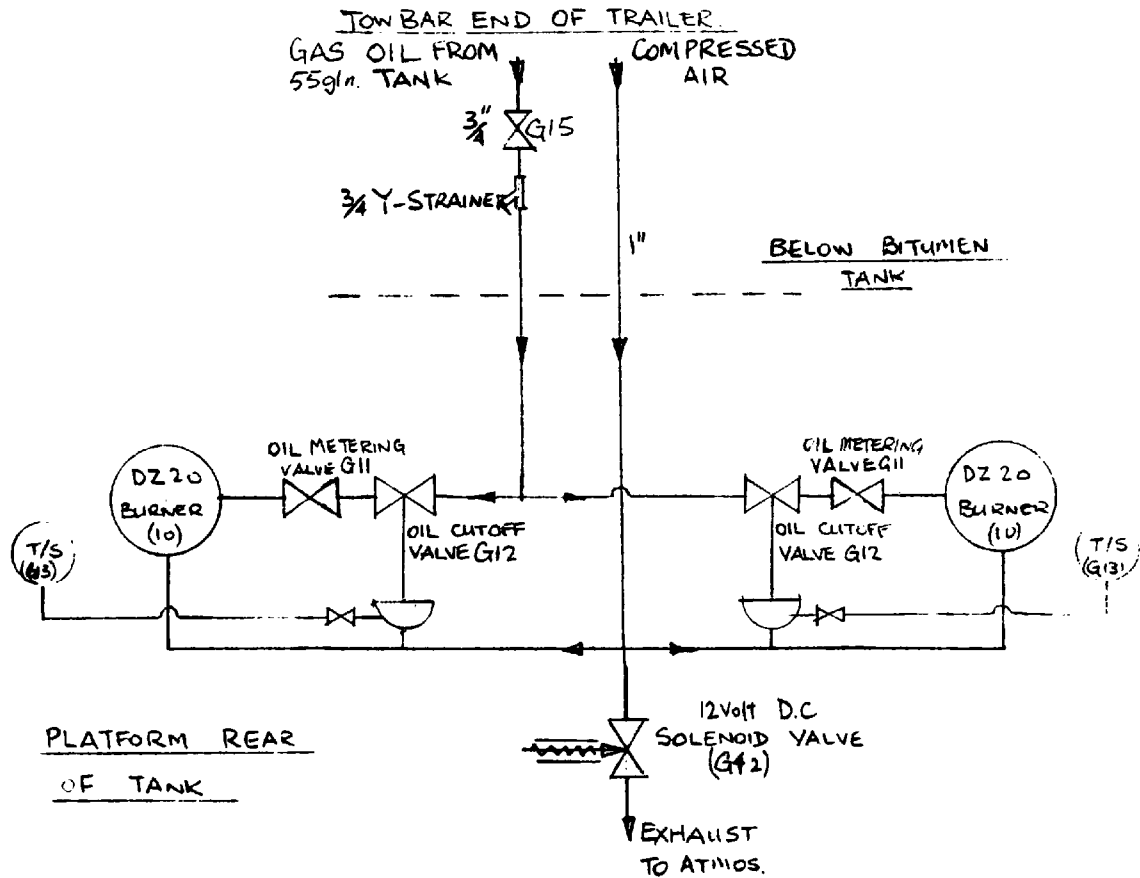 TOWBAR END OF TRAILER.
GAS OIL FROM
55gln. TANK
COMPRESSED
AIR
3/4" G15
3/4 Y-STRAINER
1"
BELOW BITUMEN
TANK
OIL METERING
VALVE G11
OIL METERING
VALVE G11
DZ 20
BURNER
(10)
DZ 20
BURNER
(10)
OIL CUTOFF
VALVE G12
OIL CUTOFF
VALVE G12
T/S
(G13)
T/S
(G13)
PLATFORM REAR
OF TANK
12Volt D.C
SOLENOID VALVE
(G42)
EXHAUST
TO ATMOS.